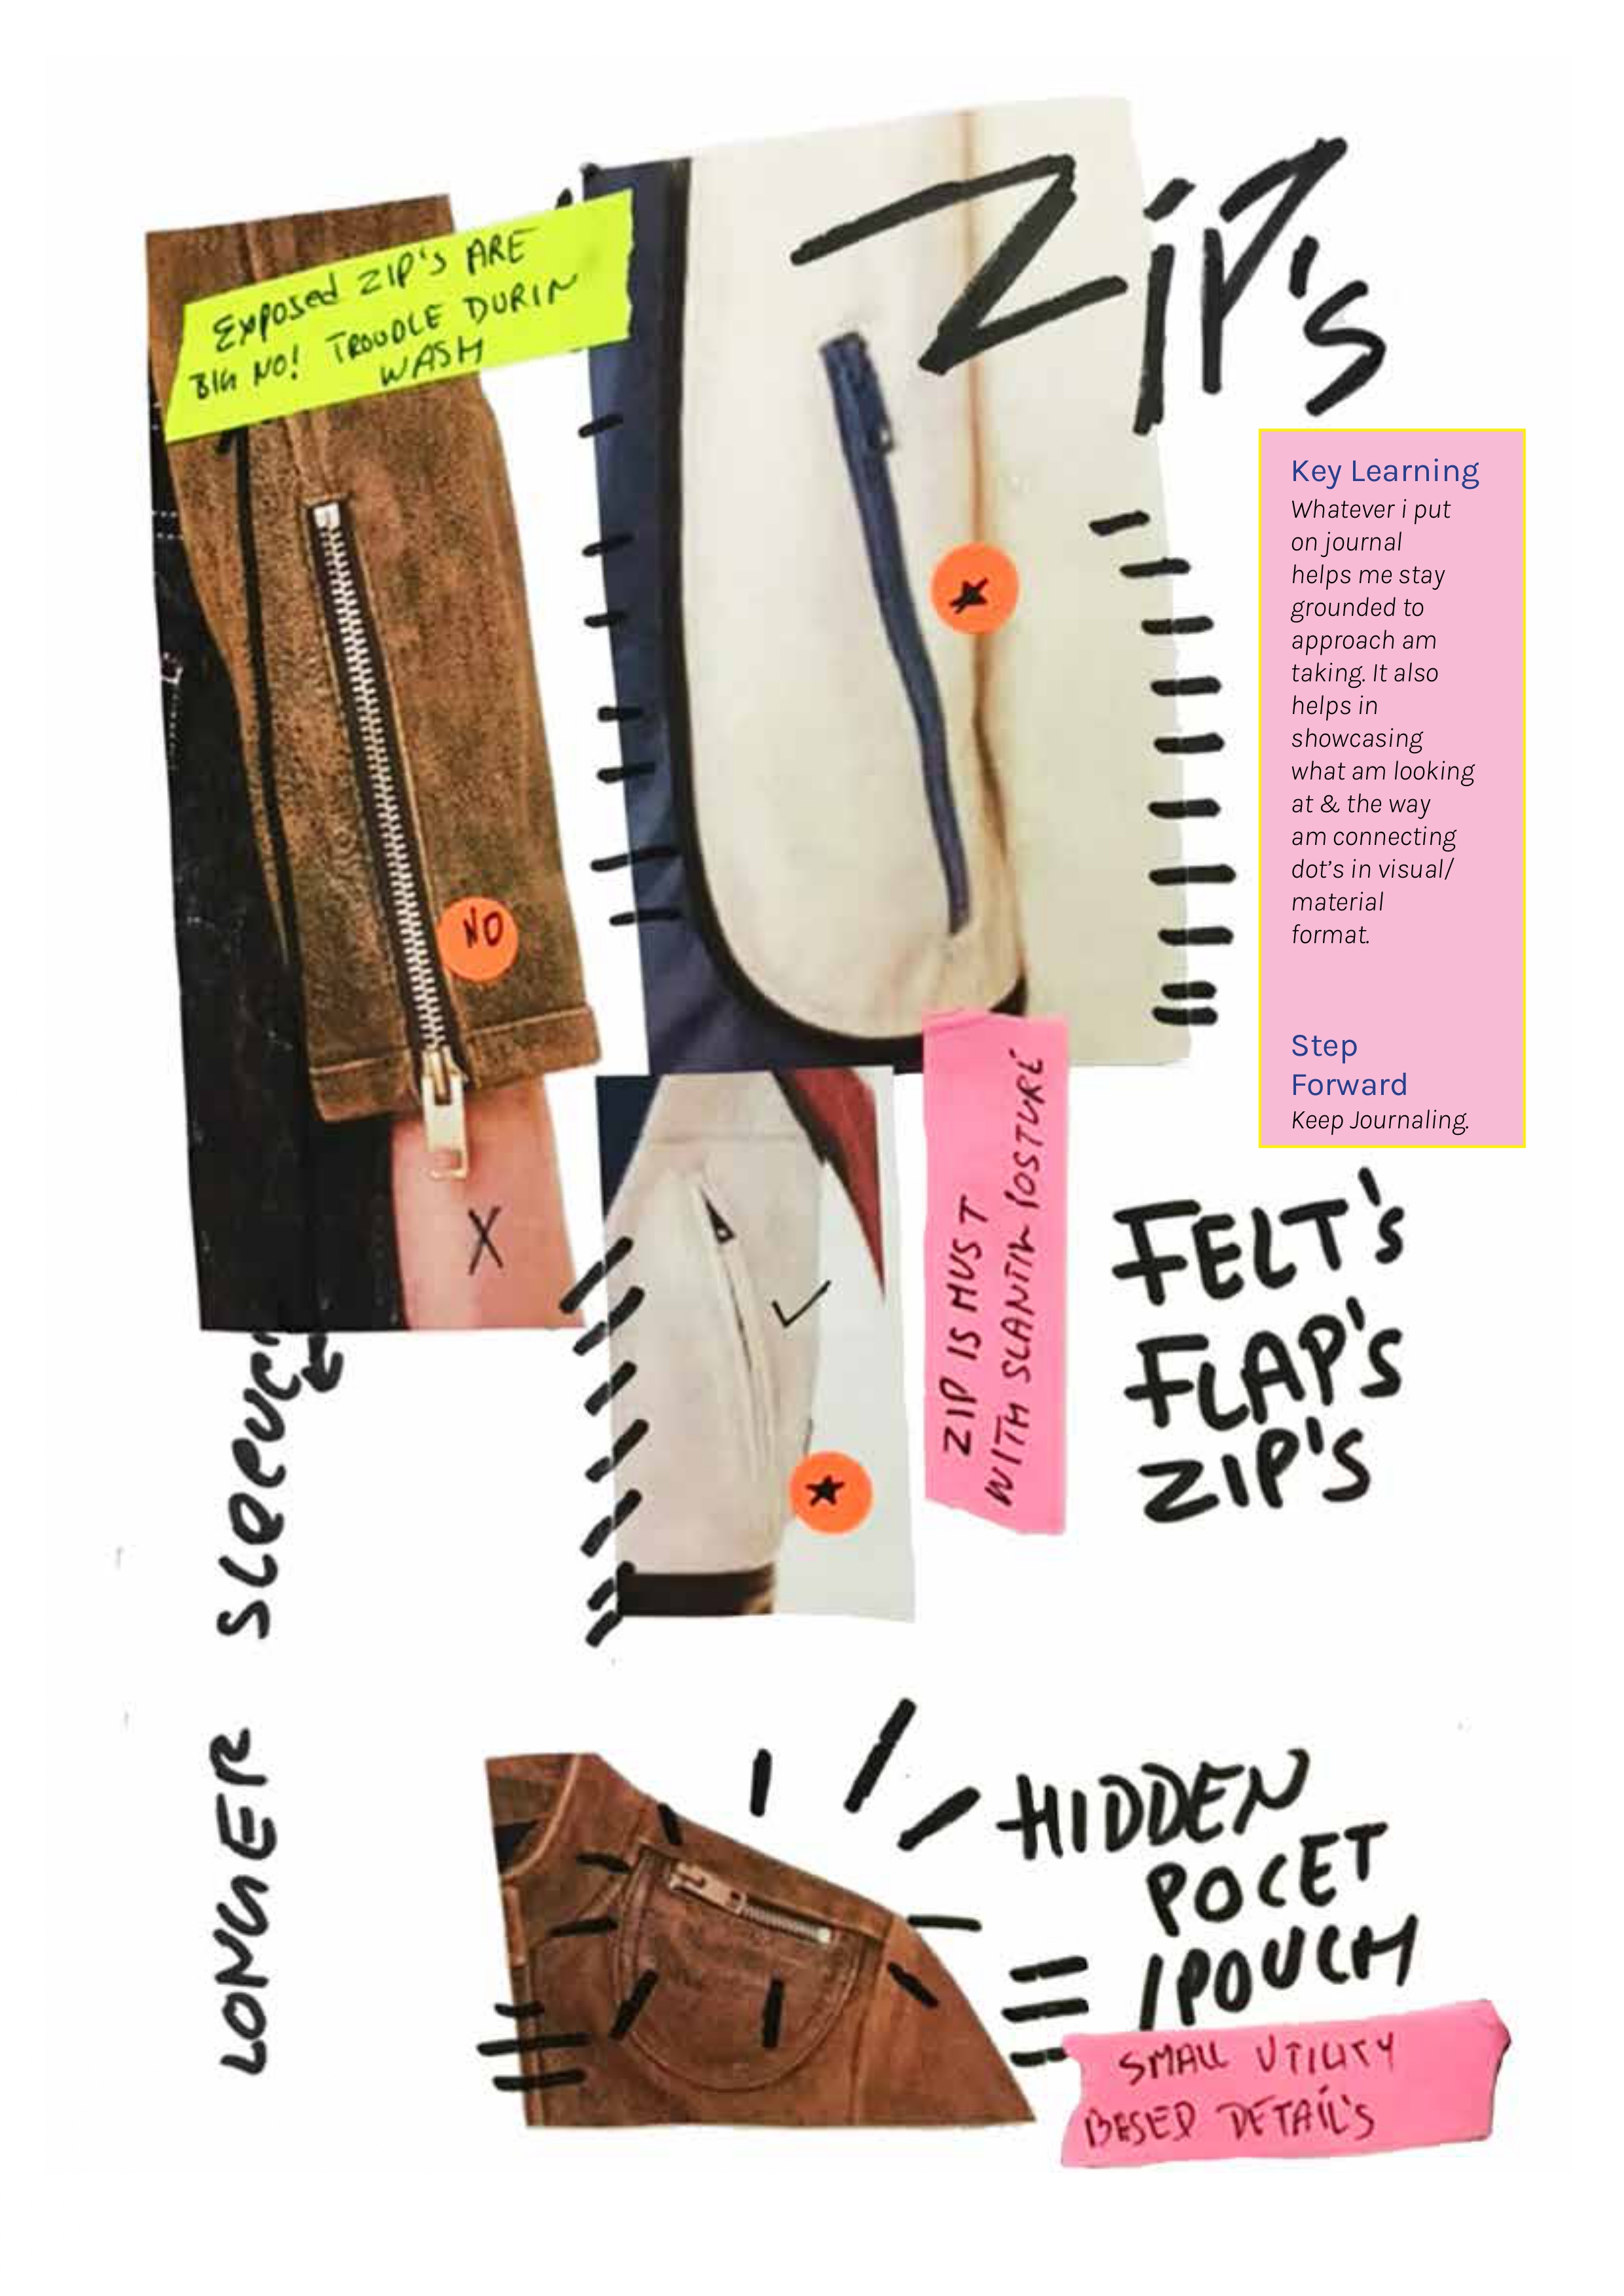 ZiP's
Exposed ZIP'S ARE
BIG NO! TROUDLE DURIN
WASH
NO
X
Key Learning
Whatever i put
on journal
helps me stay
grounded to
approach am
taking. It also
helps in
showcasing
what am looking
at & the way
am connecting
dot's in visual/
material
format.
Step
Forward
Keep Journaling.
ZIP IS MUST
WITH SLANTIN POSTURE
FELT's
FLAP's
ZIP's
LONGER
HIDDEN
POCET
/POUCH
SMALL UTILITY
BASED DETAIL'S